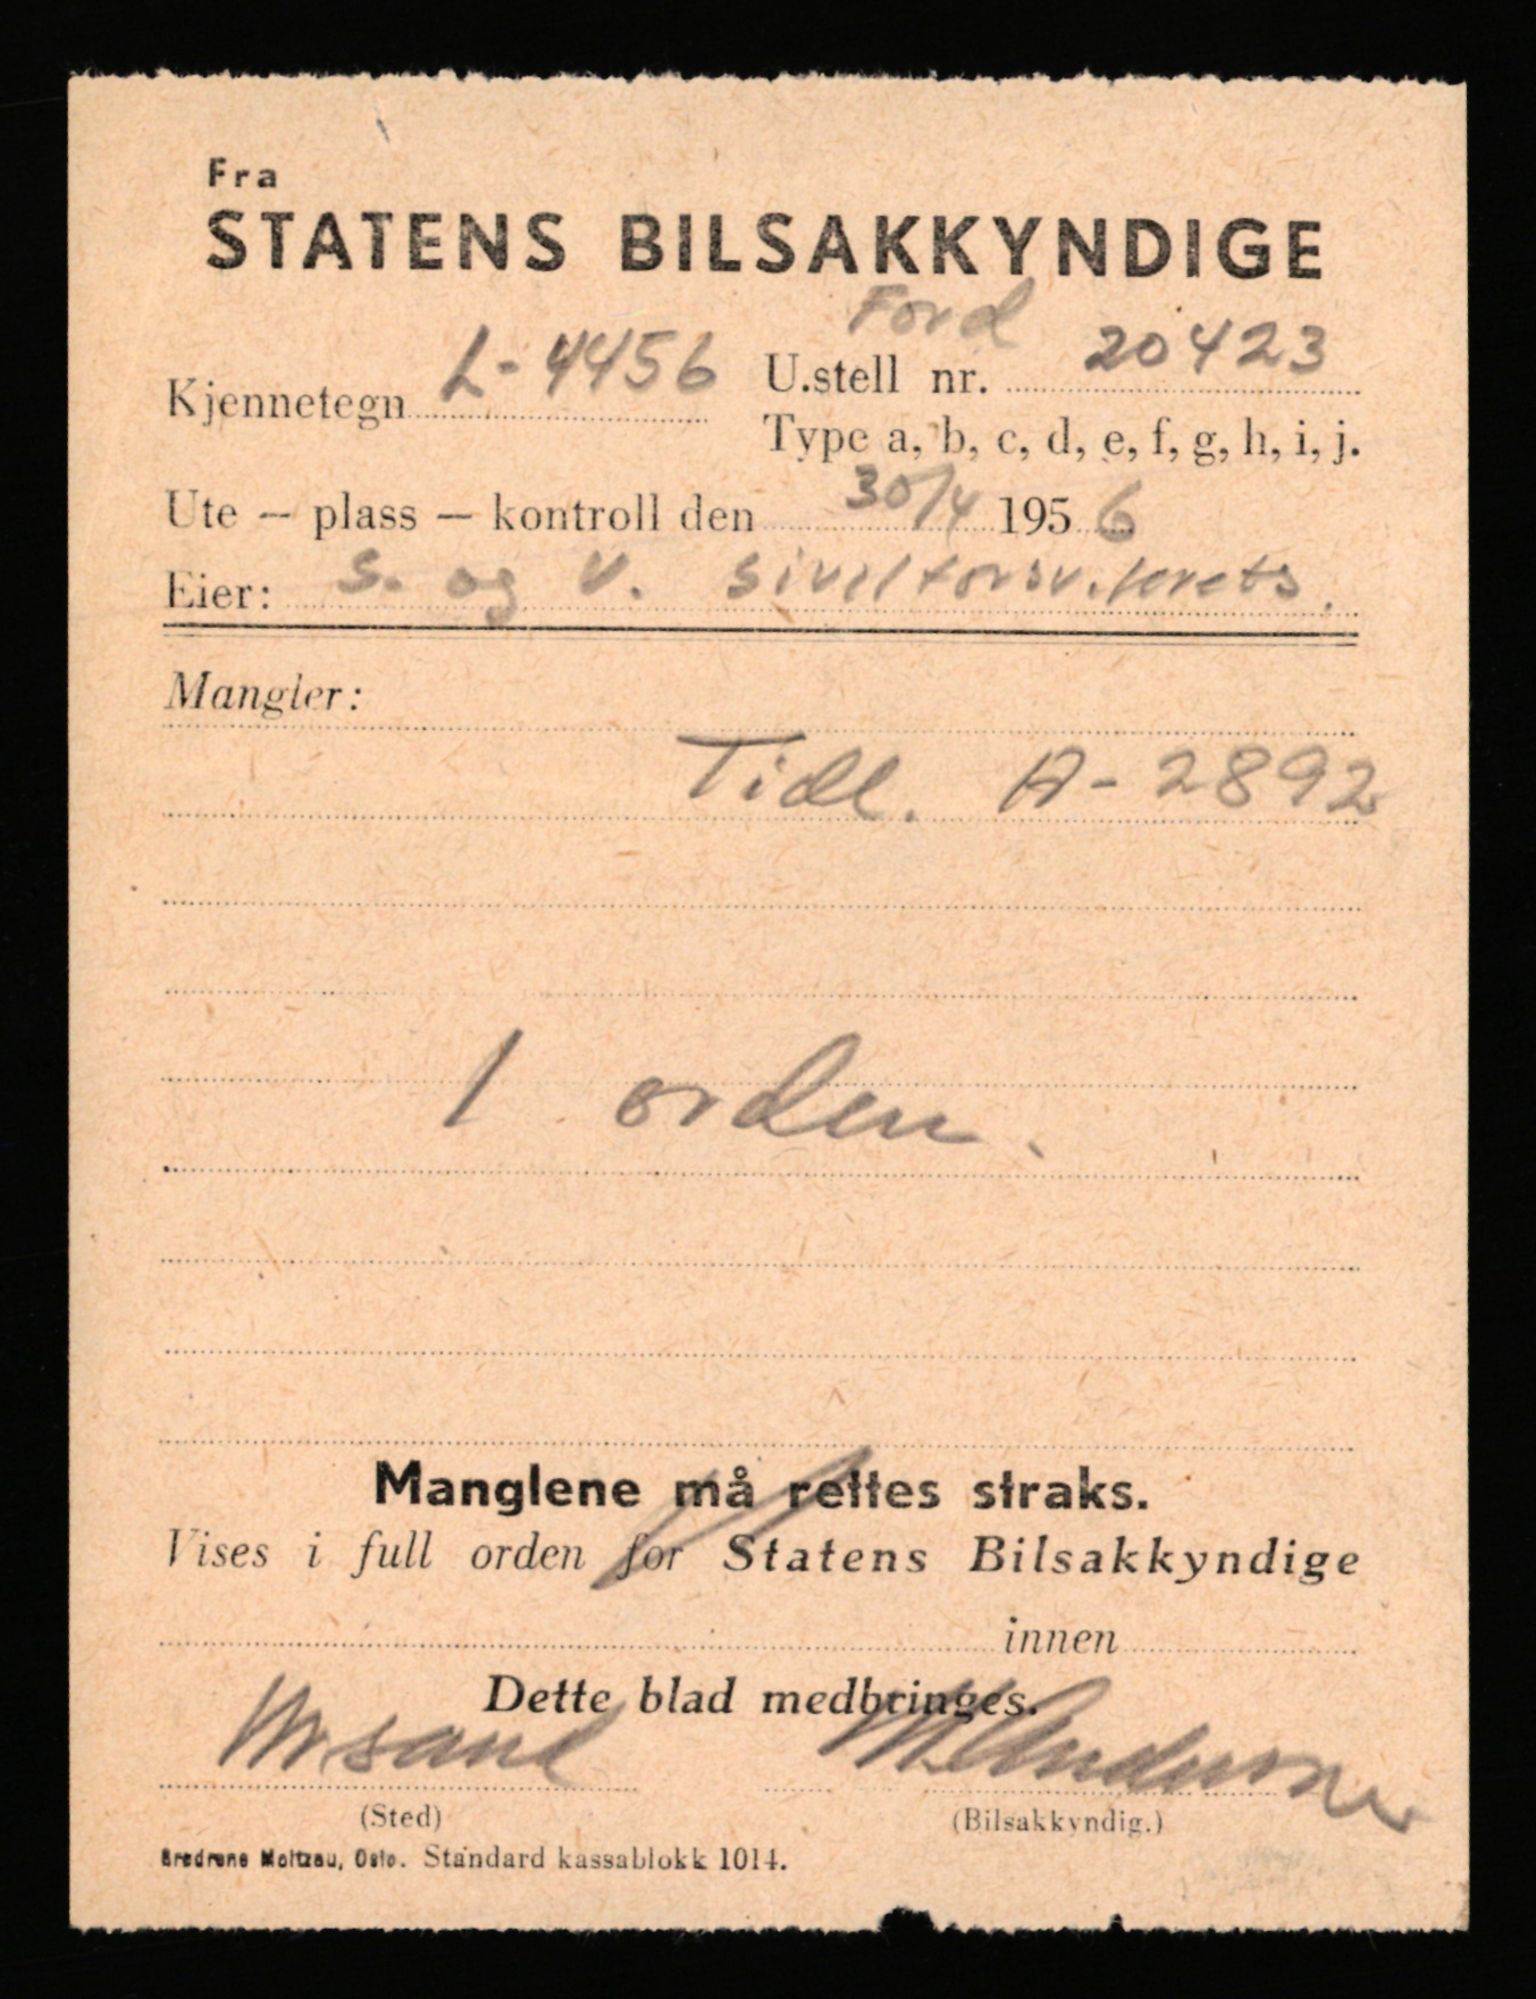 Fra
STATENS BILSAKKYNDIGE
Ford
Kjennetegn L-4456 U.stell nr. 20423
Type a, b, c, d, e, f, g, h, i, j.
Ute – plass – kontroll den 30/4 1956
Eier: S. og V. sivilforsv.krets.
Mangler:
Tidl. A-2892
I orden.
Manglene må rettes straks.
Vises i full orden for Statens Bilsakkyndige
innen
Dette blad medbringes.
(Sted) (Bilsakkyndig.)
Brødrene Moltzau, Oslo. Standard kassablokk 1014.